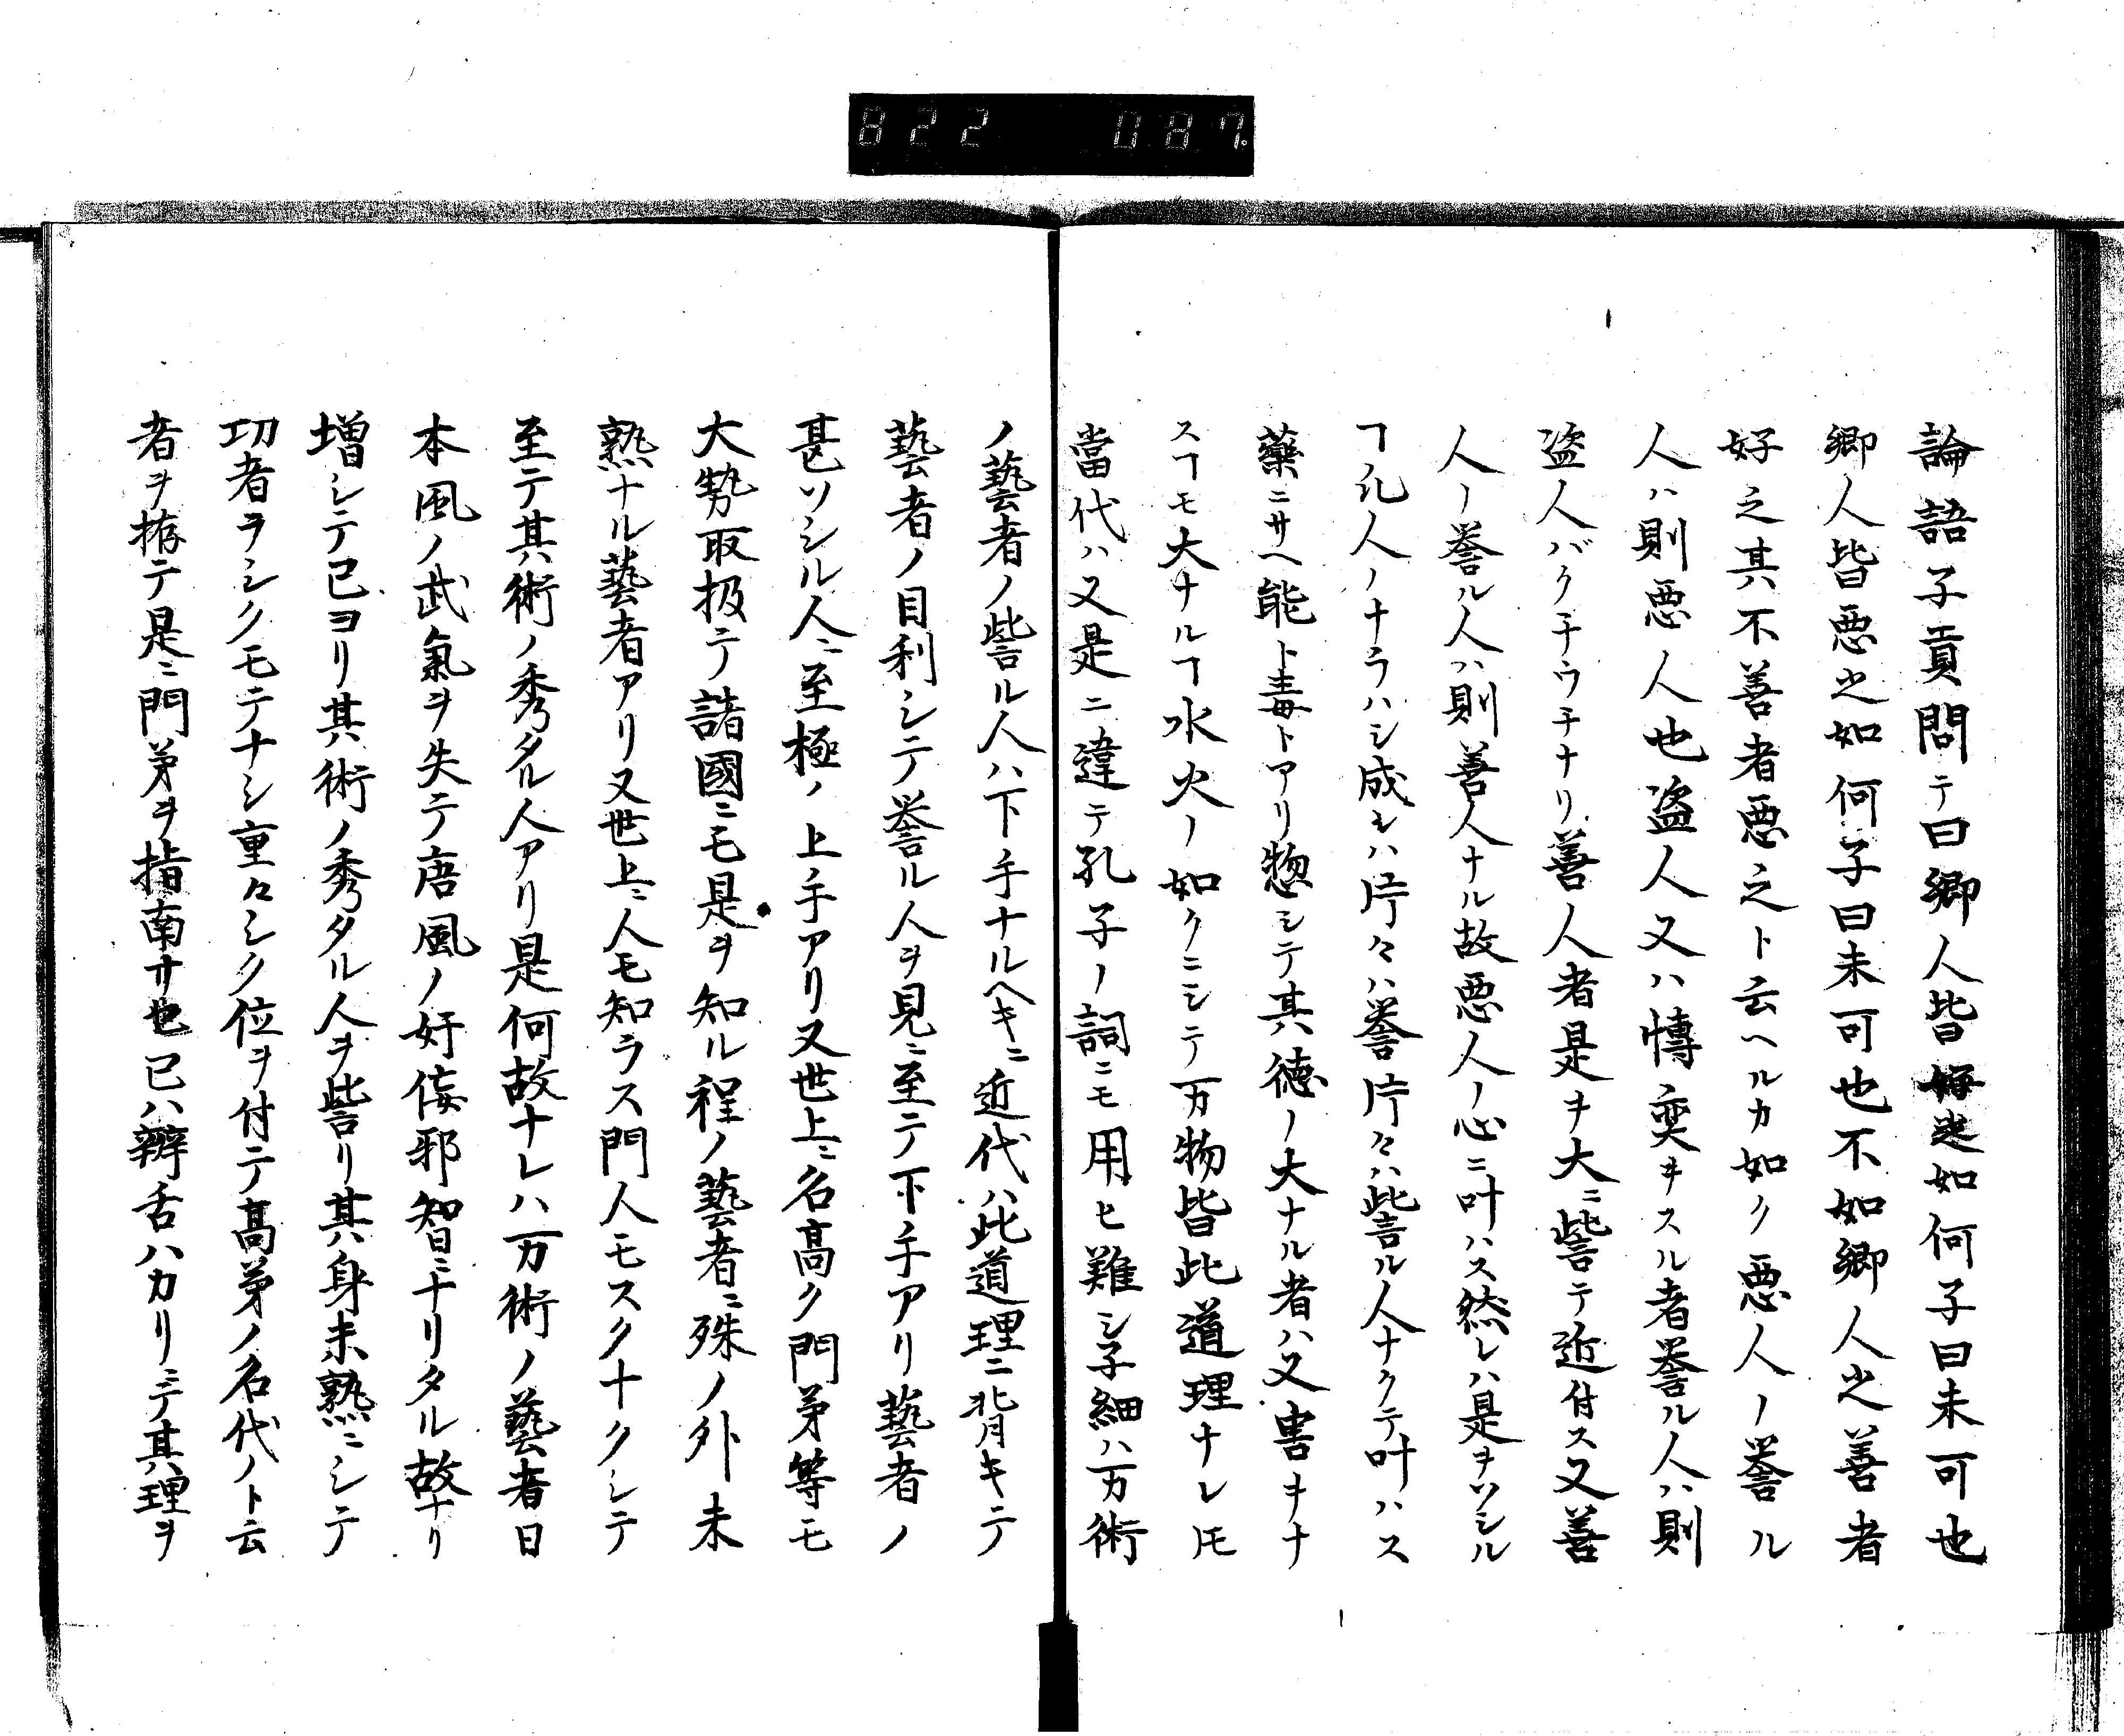 822 087
論語子貢問テ曰郷人皆好之如何子曰未可也
郷人皆悪之如何子曰未可也不如郷人之善者
好之其不善者悪之ト云ヘルカ如ク悪人ノ誉ル
人ハ則悪人也盗人又ハ慱奕ヲスル者誉ル人ハ則
盗人バクチウチナリ善人者是ヲ大ニ訾テ近付ス又善
人ノ誉ル人ハ則善人ナル故悪人ノ心ニ叶ハス然レハ是ヲソシル
ヿ凡人ノナラハシ成レハ片々ハ誉片々ハ訾ル人ナクテ叶ハス
藥ニサヘ能ト毒トアリ惣シテ其徳ノ大ナル者ハ又害ヲナ
スヿモ大ナルヿ水火ノ如クニシテ万物皆此道理ナレ𪜈
當代ハ又是ニ違テ孔子ノ詞ニモ用ヒ難シ子細ハ万術
ノ藝者ノ訾ル人ハ下手ナルヘキニ近代ハ此道理ニ背キテ
藝者ノ目利シテ誉ル人ヲ見ニ至テ下手アリ藝者ノ
甚ソシル人ニ至極ノ上手アリ又世上ニ名高ク門弟等モ
大勢取扱テ諸國ニモ是ヲ知ル程ノ藝者ニ殊ノ外未
熟ナル藝者アリ又世上ニ人モ知ラス門人モスクナクシテ
至テ其術ノ秀タル人アリ是何故ナレハ万術ノ藝者日
本風ノ武氣ヲ失テ唐風ノ奸侫邪智ニナリタル故ナリ
増シテ己ヨリ其術ノ秀タル人ヲ訾リ其身未熟ニシテ
功者ラシクモテナシ重々シク位ヲ付テ高弟ノ名代ノト云
者ヲ拵テ是ニ門弟ヲ指南サセ己ハ辯舌ハカリニテ其理ヲ